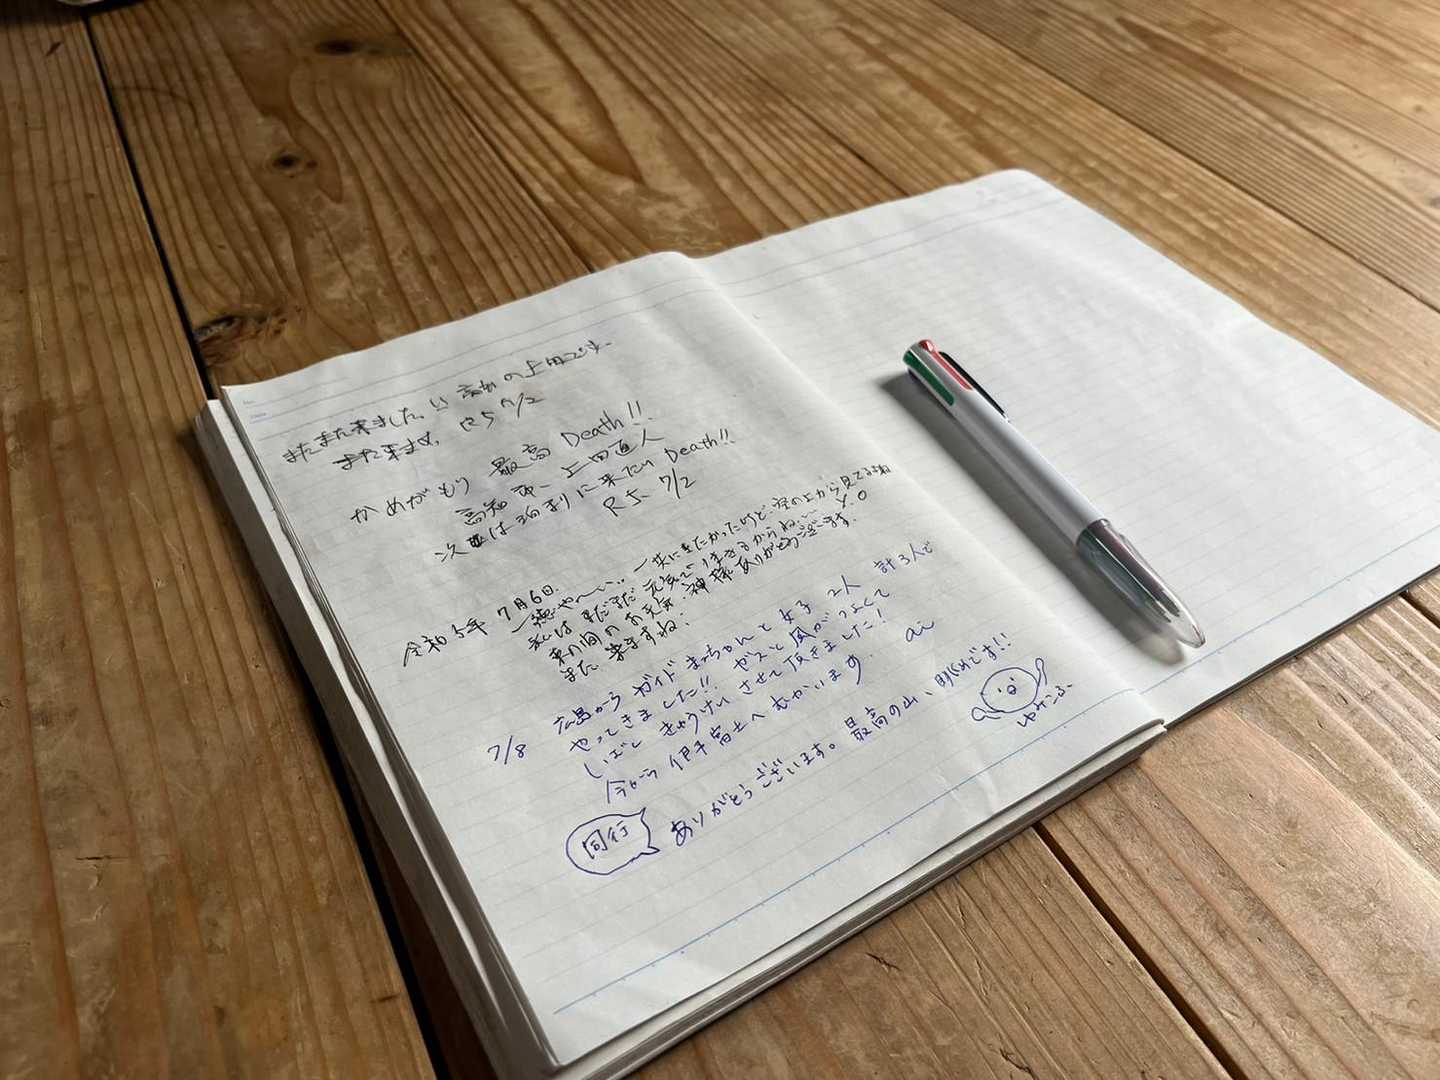 またまた来ました。 高知の上田です。
また来ます。 R5 7/2
かめがもり 最高 Death!!
高知市、上田直人
次は泊まりに来たい Death!!
R5. 7/2
令和5年 7月6日.
一徳や〜い.. 一共に来たかったけど、空の上から見てるよね
私はまだまだ元気で 生きるからね…
束の間のお天気、神様ありがとうございます。 Y.O
また来ますね.
7/8 広島から ガイド まっちゃんと女子 2人 計3人で
やってきました!! ガスと風がつよくて
しばし きゅうけい させて頂きました!
今から 伊予富士へ むかいます ai
同行
ありがとうございます。最高の山、眺めです!!
ゆみこふ、